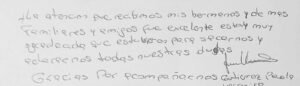 La atencion que recibimos mis hermanos y de mas
familiares y amigos fue excelente estoy muy
agradecida que estubieron para sacarnos y
aclararnos todas nuestras dudas
Gracias por acompañarnos Gutierrez Paola